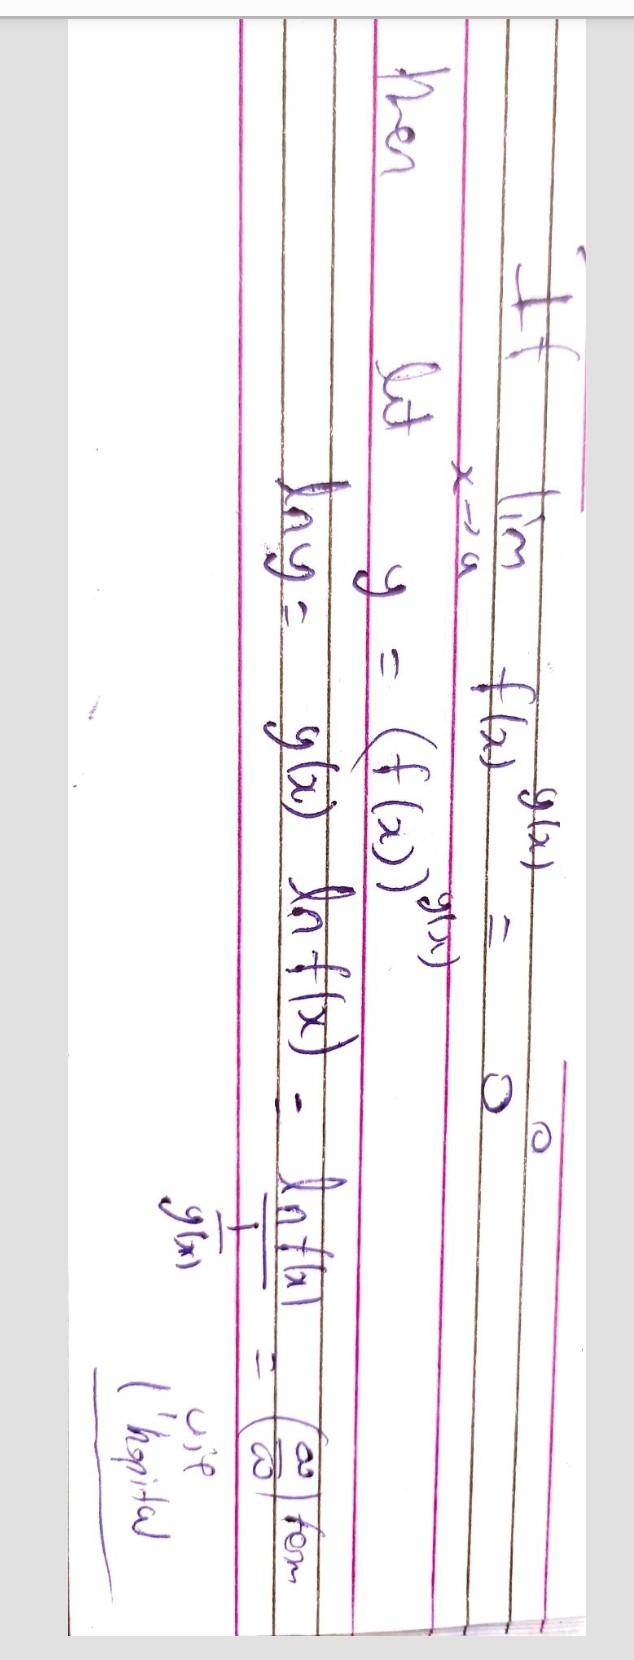 If lim x→a f(x)^g(x) = 0^0
then let y = (f(x))^g(x)
ln y = g(x) ln f(x) = ln f(x) / (1 / g(x)) = (∞/∞) form
l'hopital